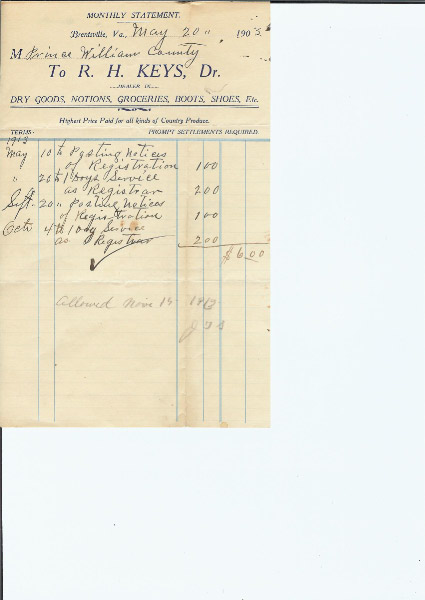 MONTHLY STATEMENT.
Brentsville, Va., May 20 " 190
M Prince William County
To R. H. KEYS, Dr.
DEALER IN
DRY GOODS, NOTIONS, GROCERIES, BOOTS, SHOES, Etc.
Highest Price Paid for all kinds of Country Produce.
TERMS: PROMPT SETTLEMENTS REQUIRED
1913
May 10th Posting Notices
of Registration 1 00
" 20th 1 Days Service
as Registrar 2 00
Sept. 20 " Posting Notices
of Registration 1 00
Octr 4th 1 Day Service
as Registrar 2 00
$6.00
Allowed Nov. 1913